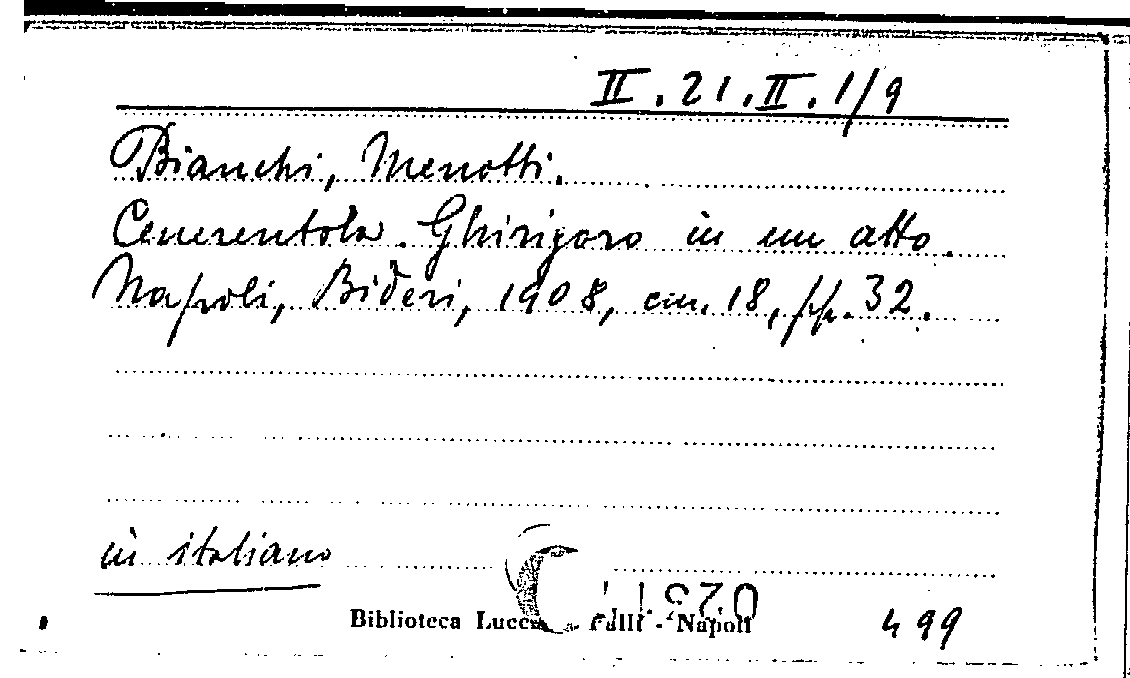 II.21.II.1/9
Bianchi, Menotti.
Cenerentola. Ghirigoro in un atto.
Napoli, Bideri, 1908, cm. 18, pp. 32.
in italiano
Biblioteca - Napoli
499